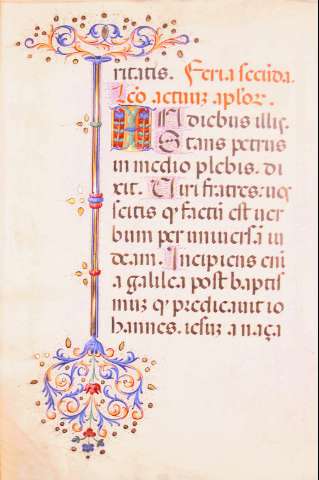 ritatis. Feria secũda.
Lc̃o actuuʒ aploꝝ.
IN diebus illis.
Stans petrus
in medio plebis. di
xit. Uiri fratres: uos
scitis qͥ factũ est uer
bum per uniuersã iu
deam. Incipiens eni
a galilea post baptis
muʒ qͥ predicauit io
hannes. iesuʒ a naça